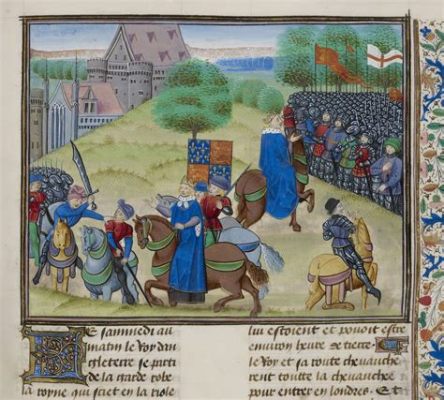 Le sammedi au
matin le Roy dan
gleterre se parti
de la garde robe
la royne qui siet en la riole
lui estoient et pouoit estre
enuiron heure de tierce
le Roy et sa route cheuauche
rent toutte la cheuauchee
pour entrer en londres. Et